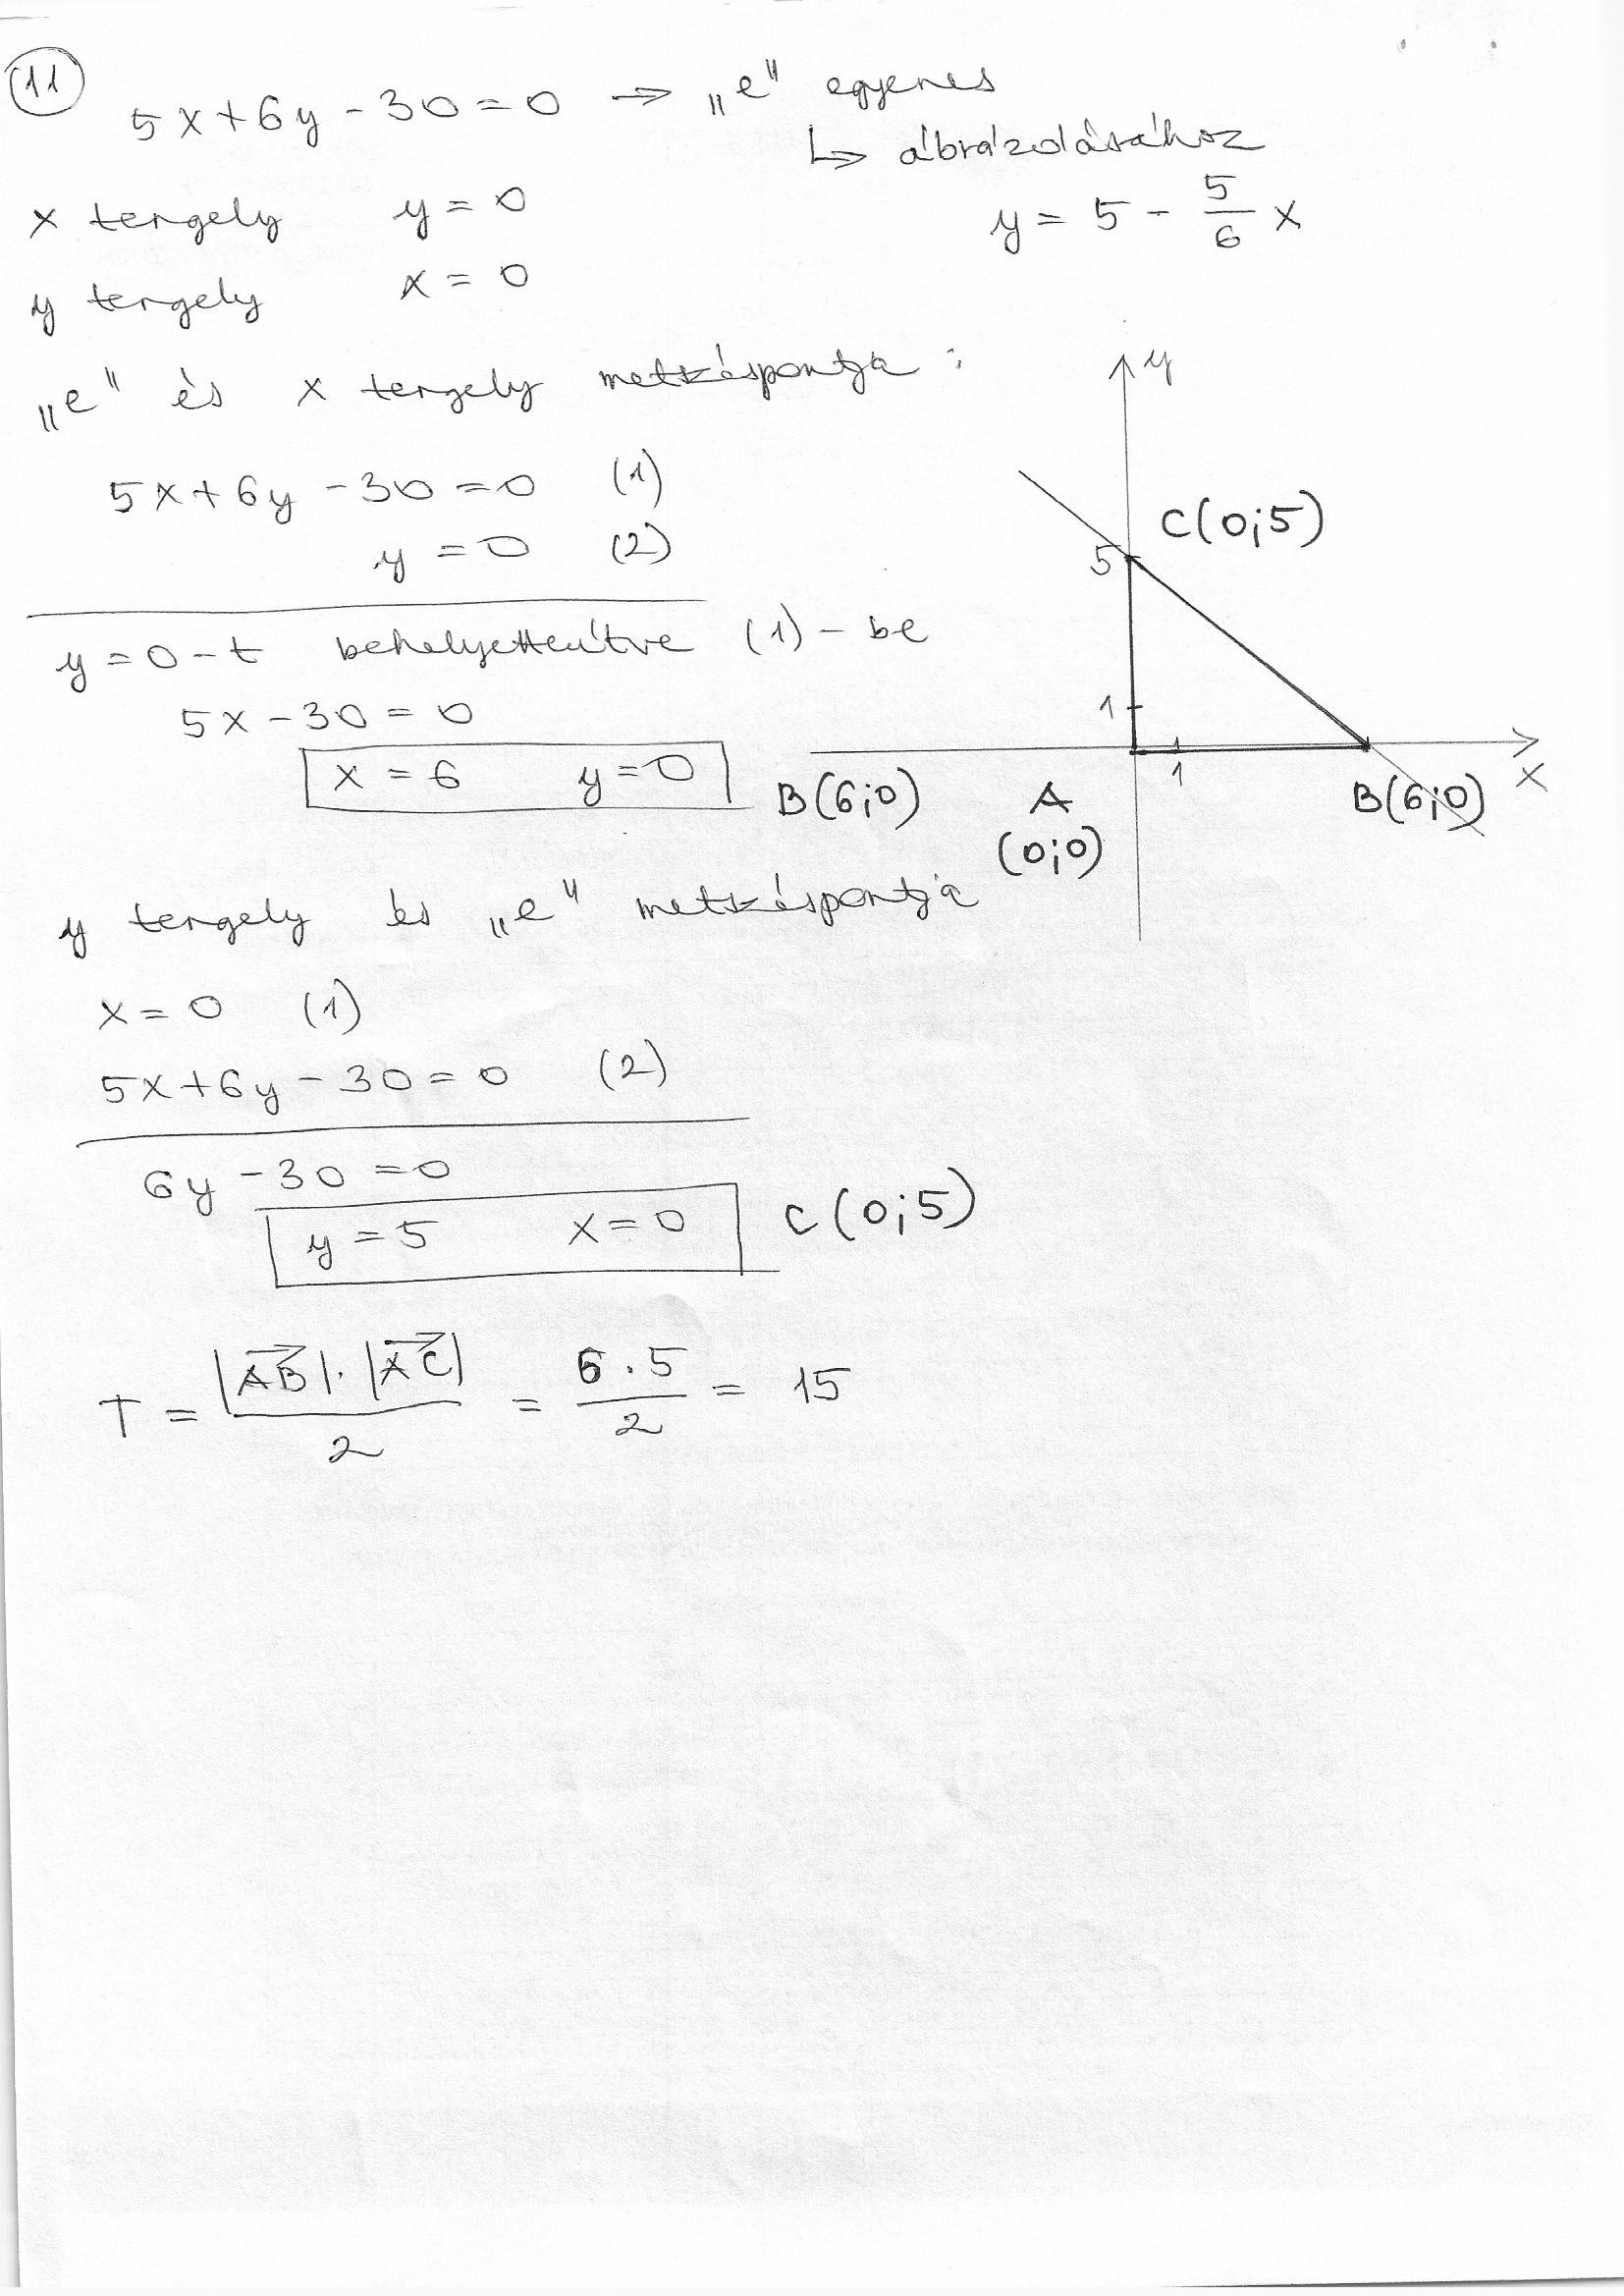 11
5x+6y-30=0 → „e" egyenes
↳ ábrázolásához
x tengely y=0
y = 5 - 5/6 x
y tengely x=0
„e" és x tengely metszéspontja:
y
5x+6y-30=0 (1)
y=0 (2)
C(0;5)
5
y=0-t behelyettesítve (1)-be
5x-30=0
1
x=6 y=0 B(6;0)
1
x
A
(0;0)
B(6;0)
y tengely és „e" metszéspontja
x=0 (1)
5x+6y-30=0 (2)
6y-30=0
y=5 x=0 C(0;5)
T = |AB|·|AC| / 2 = 6·5 / 2 = 15